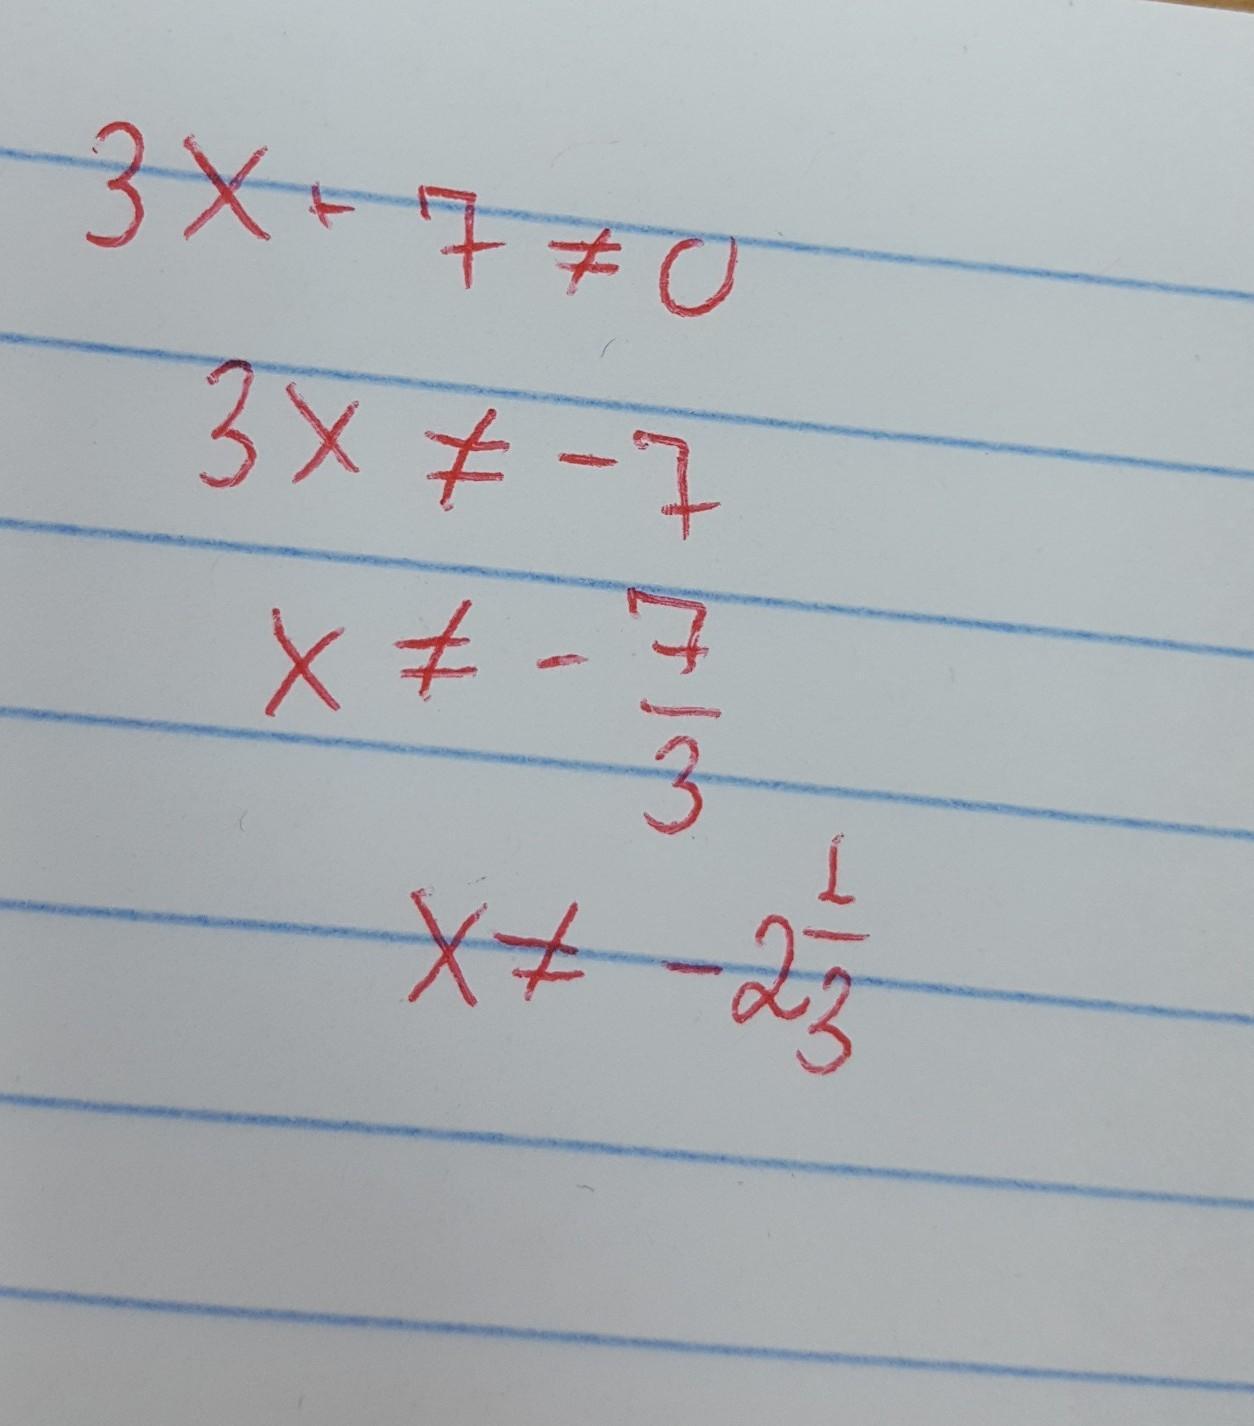 3x + 7 ≠ 0
3x ≠ -7
x ≠ - 7/3
x ≠ -2 1/3